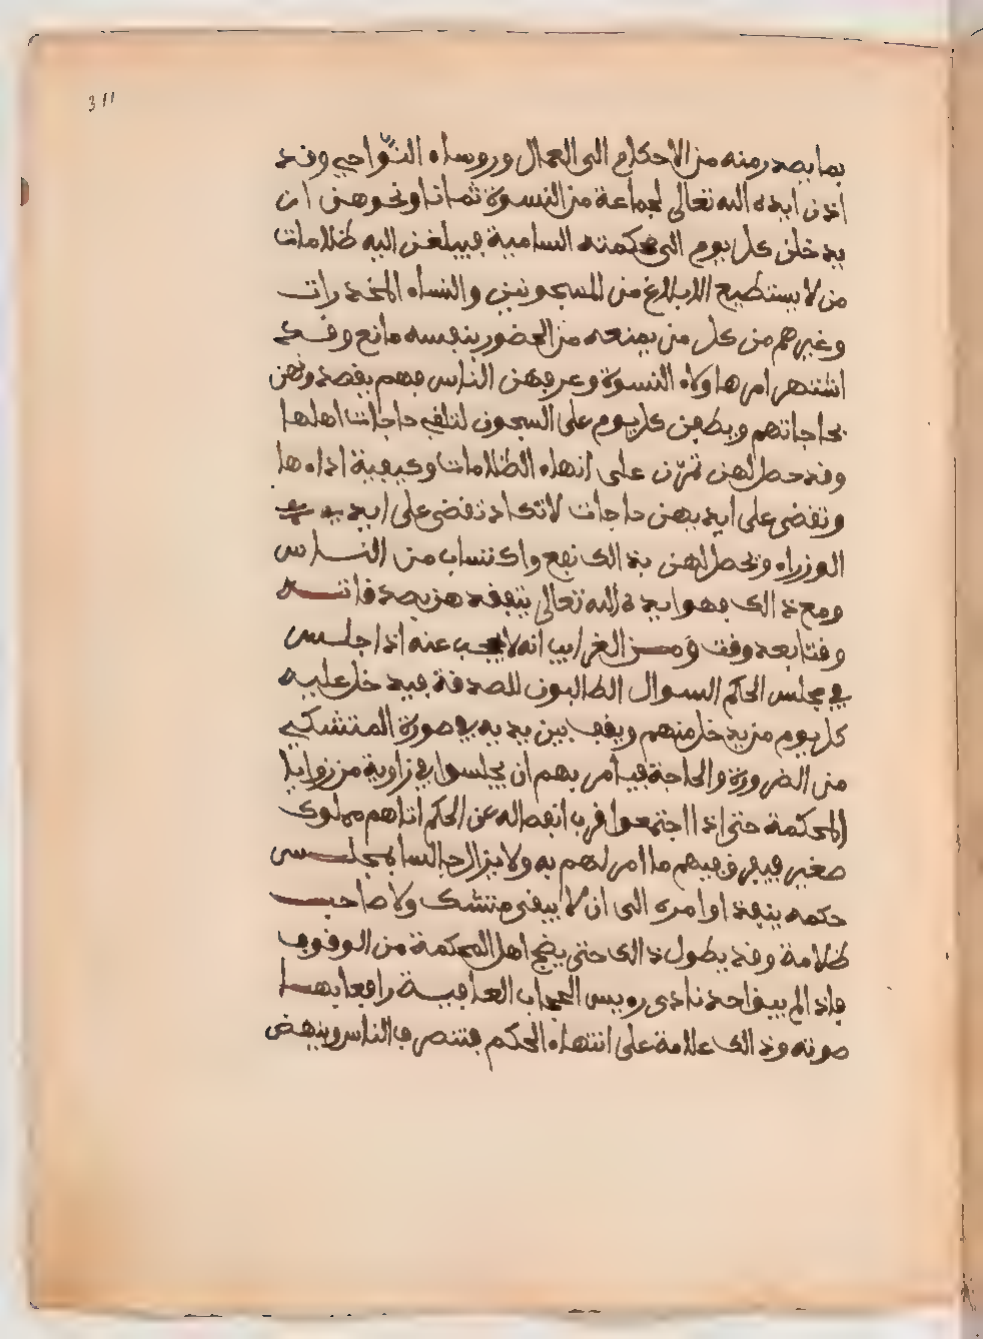 311
بما يصدر منه من الاحكام الى العمال وروساء النّواحي وقد
اذن ايده الله تعالى لجماعة من النسوة ثمانا ونحوهن ان
يدخلن كل يوم الى محكمته السامية فيبلغن اليه ظلامات
من لا يستطيع الابلاغ من المسجونين والنساء المخدرات
وغيرهم من كل من يمنعه من الحضور بنفسه مانع وقد
اشتهر امر هاولاء النسوة وعرفهن الناس فهم يقصدونهن
بحاجاتهم ويطفن كل يوم على السجون لتلقى حاجات اهلها
وقد حصل لهن تمرّن على انهاء الظلامات وكيفية اداءها
وتقضى على ايديهن حاجات لا تكاد تقضى على ايدي
الوزراء ويحصل لهن بذالك نفع واكتساب من الناس
ومع ذالك فهو ايده الله تعالى يتفقدهن بصدقاته
وقتا بعد وقت ومن الغرايب انه لا يحجب عنه اذا جلس
في مجلس الحكم السوال الطالبون للصدقة فيدخل عليه
كل يوم من يدخل منهم ويقف بين يديه في صورة المتشكي
من الضرورة والحاجة فيامر بهم ان يجلسوا في زاوية من زوايا
المحكمة حتى اذا اجتمعوا قرب انفصاله عن الحكم اتاهم مملوك
صغير فيفرق فيهم ما امر لهم به ولا يزال جالسا بمجلس
حكمه ينفذ اوامره الى ان لا يبقى متشك ولا صاحب
ظلامة وقد يطول ذالك حتى يضج اهل المحكمة من الوقوف
فاذا لم يبق احد نادى رويس الحجاب العافية رافعا بها
صوته وذالك علامة على انتهاء الحكم فتنصرف الناس وينهض